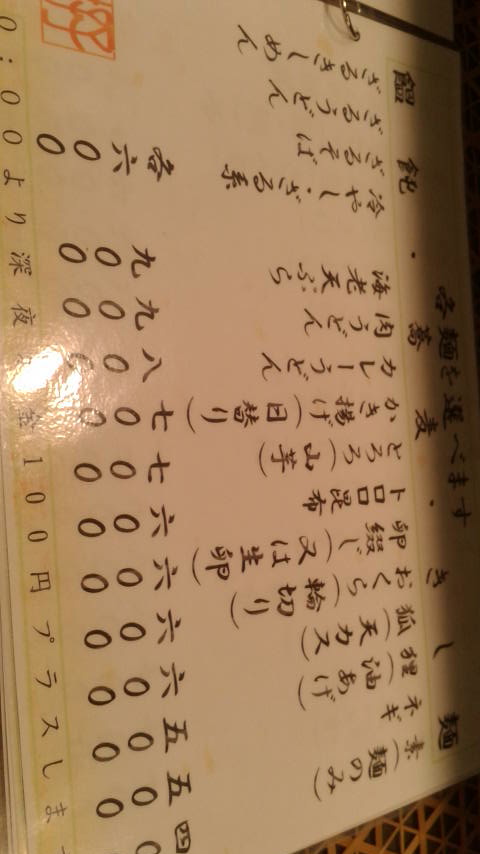 饂飩・蕎麦・きし麺
各麺を選べます
素(麺のみ) 四
ネギ 五〇〇
狸(油あげ) 五〇〇
狐(天カス) 六〇〇
おくら(輪切り) 六〇〇
卵綴じ(又は生卵) 六〇〇
トロロ昆布 六〇〇
とろろ(山芋) 七〇〇
かき揚げ(日替り) 七〇〇
カレーうどん 八〇〇
肉うどん 九〇〇
海老天ぷら 九〇〇
冷やし・ざる系 各六〇〇
ざるそば
ざるうどん
ざるきしめん
0:00より深夜 金100円プラスしま